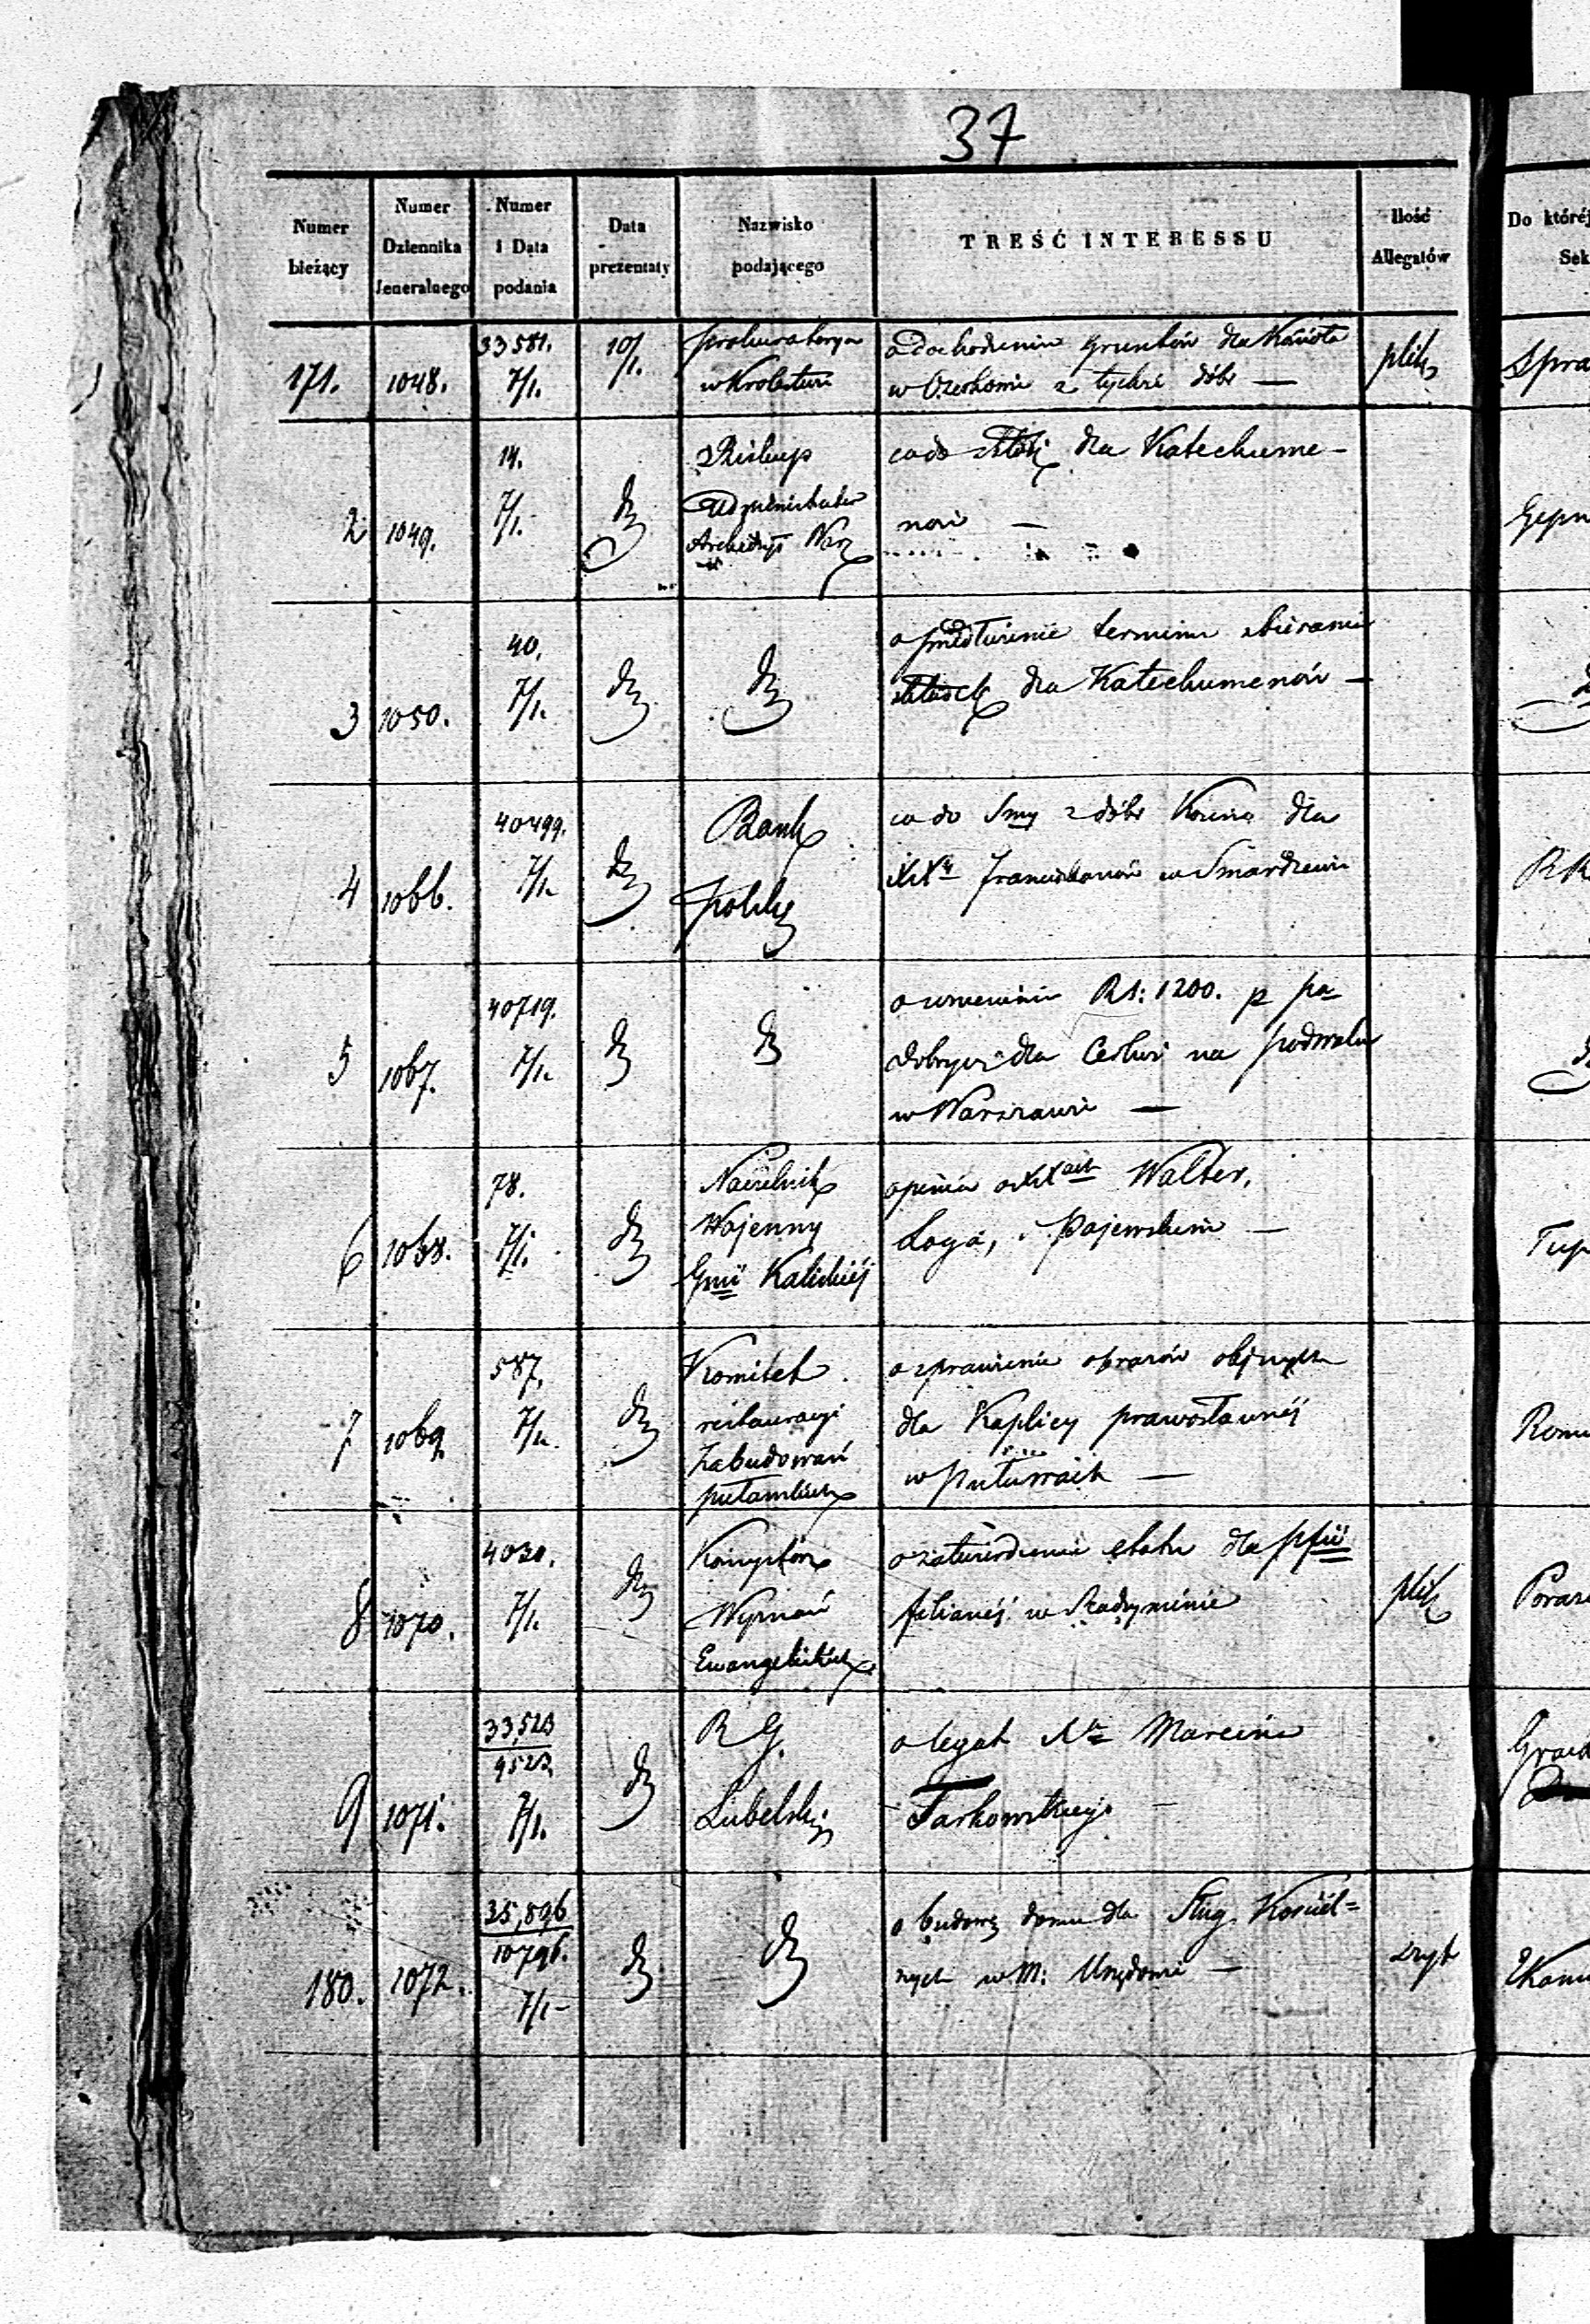 37
Numer bieżący
Numer Dziennika Jeneralnego
Numer i Data podania
Data prezentaty
Nazwisko podającego
TREŚĆ INTERESSU
Ilość Allegatów
Do któréj
Sek
171. 1048. 33581. 7/1. 10/1. Prokuratorya w Królestwie
o dochodzeniu gruntów dla Kościoła
w Ozorkowie z tychże dóbr —
plik
Spra
2 1049. 14. 7/1. dto Biskup Administrator Archidyi Warz
co do dla Katechume-
nów —
3 1050. 40. 7/1. dto dto
o przedłużenie terminu zbierania
składek dla Katechumenów —
4 1066. 40499. 7/1. dto Bank Polski
co do Smy z dóbr dla
XX Franciszkanów w Smardzewie
5 1067. 40719. 7/1. dto dto
o Rs: 1200. p Pa-
dla Cerkwi na Podwalu
w Warszawie —
6 1068. 78. 7/1. dto Naczelnik Wojenny Gnii Kaliskiéj
opinia o XX Walter,
Loga, i Pajewskim —
7 1069. 587. 7/1. dto Komitet restauracyi Zabudowań puławskich
o sprawienie obrazów
dla Kaplicy prawosławnéj
w Puławach —
8 1070. 4030. 7/1. dto Konsystorz Wyznań Ewangelickich
o zatwierdzenie etatu dla pfii
filianéj w Radyminie
plik
9 1071. 33,523 9523 7/1. dto R G. Lubelski
o legat Marcina
Tarkowskiego —
180. 1072. 35,896 10796. 7/1 dto dto
o budowę domu dla Sług Kościel=
nych w M. Urzędowie —